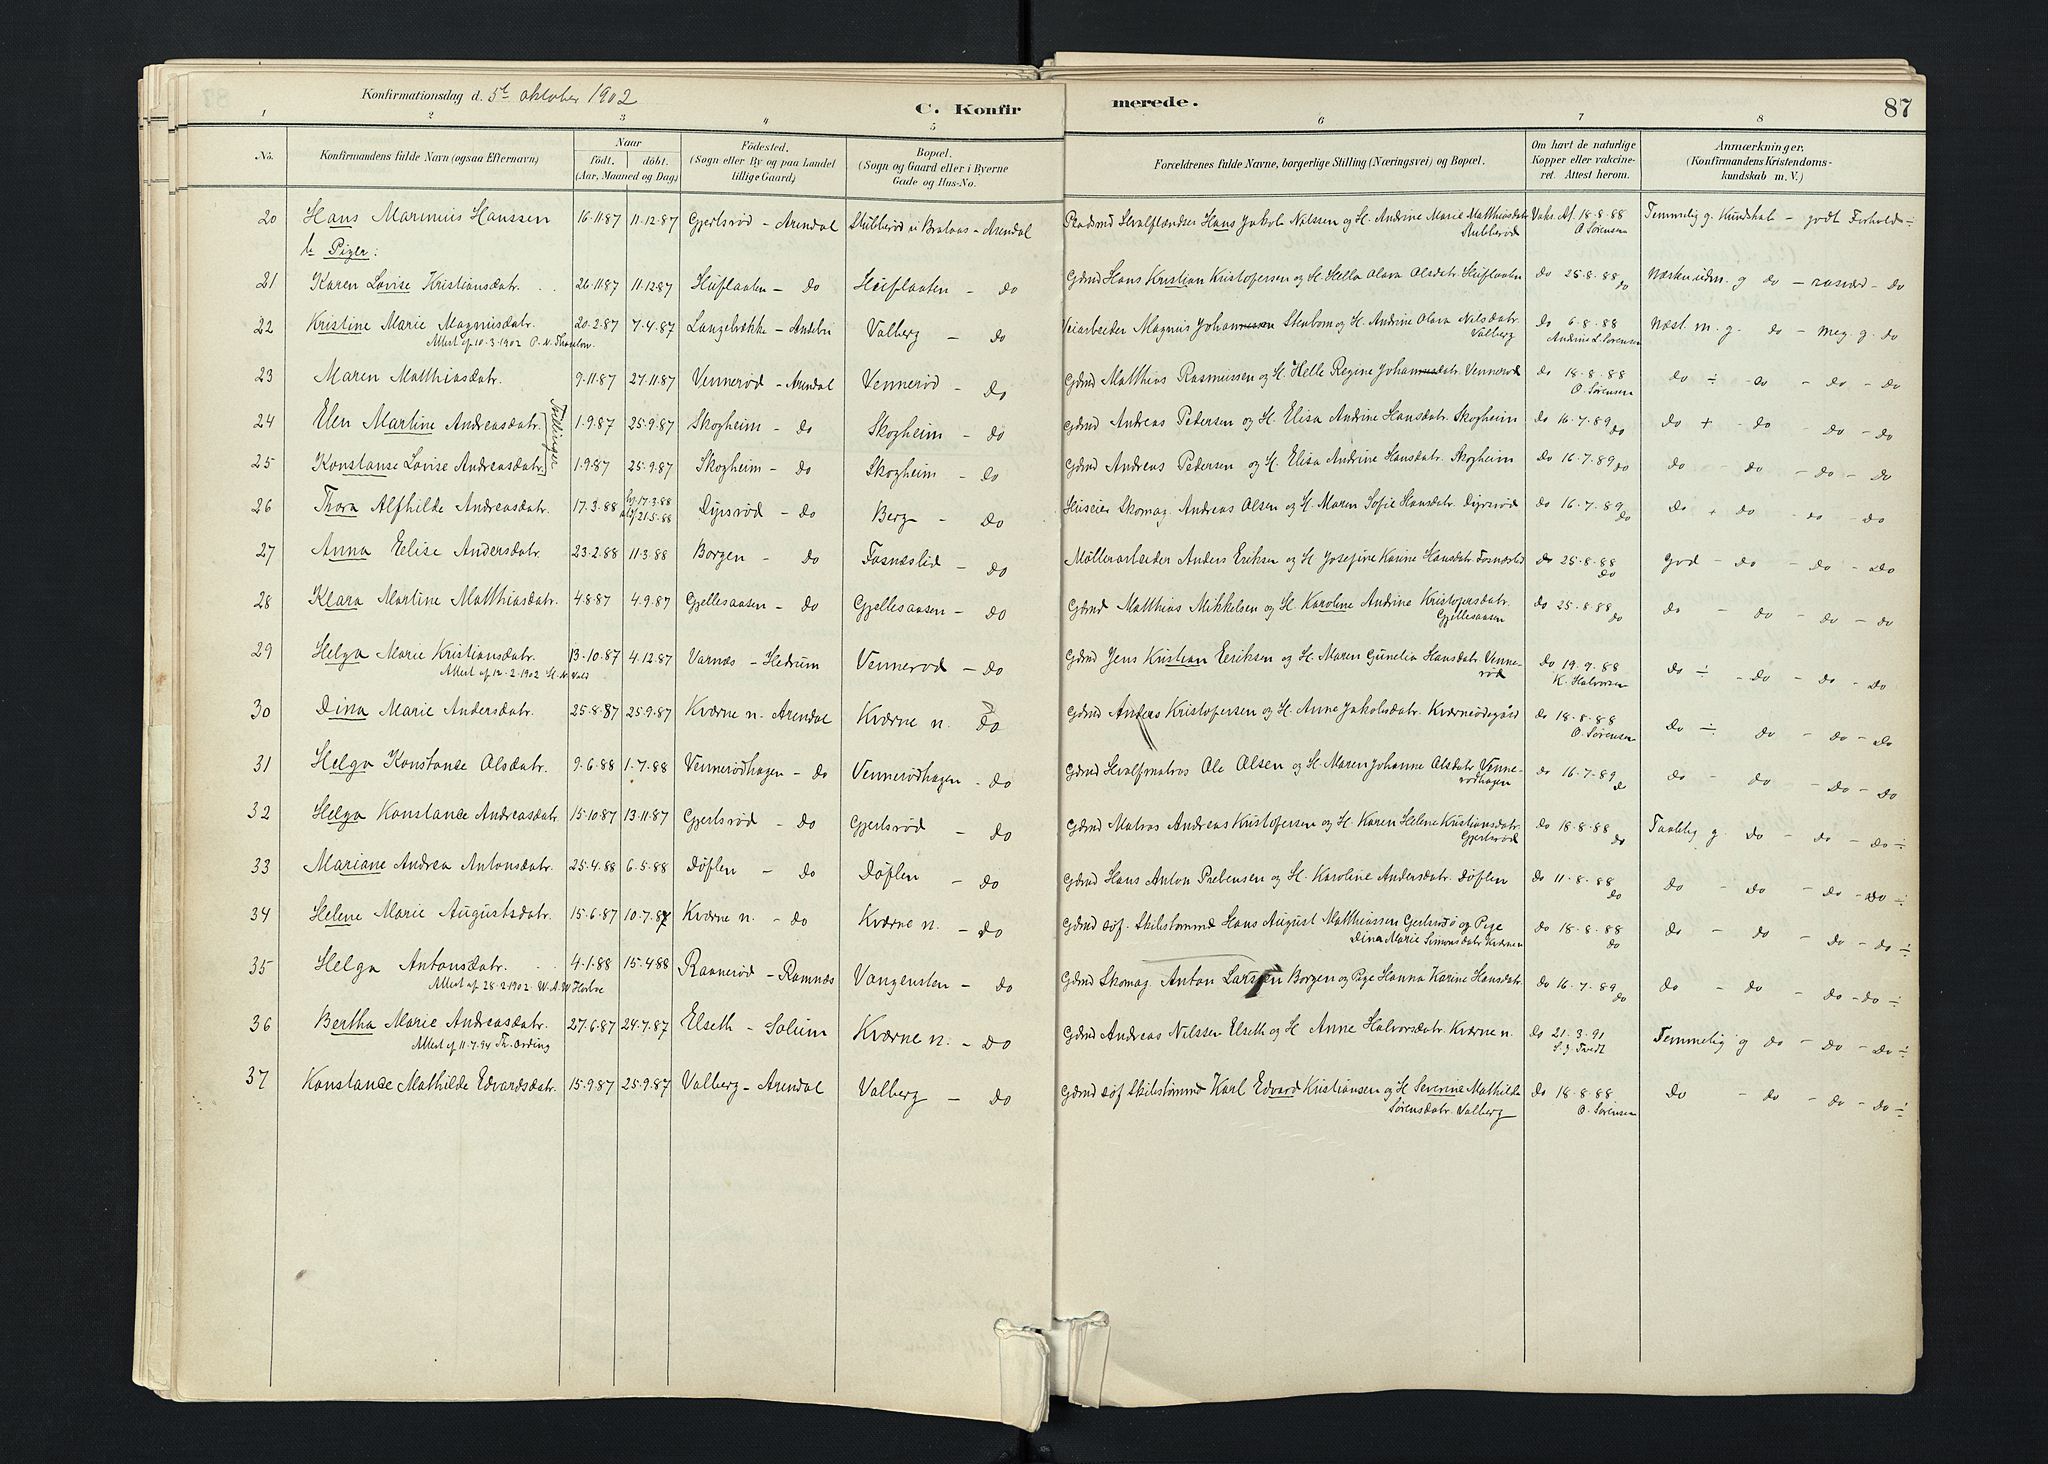 Konfirmationsdag d. 5te oktober 1902
C. Konfirmerede.
87
1 2 3 4 5 6 7 8
No. Konfirmandens fulde Navn (ogsaa Efternavn) Naar født. døbt. (Aar, Maaned og Dag) Födested. (Sogn eller By og paa Landet tillige Gaard) Bopæl. (Sogn og Gaard eller i Byerne Gade og Hus-No. Forældrenes fulde Navne, borgerlige Stilling (Næringsvei) og Bopæl. Om havt de naturlige Kopper eller vakcineret. Attest herom. Anmærkninger. (Konfirmandens Kristendomskundskab m. V.)
20 Hans Marinius Hanssen 16.11.87 11.12.87 Gjertsrød - Arendal Stubberød u Brataas - Arendal Hans Jakob Nilssen og H. Andrine Marie Matthiasdatr Stubberød Vaks. Af. 18.8.88 O Sørensen Temmelig g. Kundskab - godt Forhold ÷
b Piger:
21 Karen Lovise Kristiansdatr. 26.11.87 11.12.87 Huflaaten - do Huflaaten - do Gdmd Hans Kristian Kristofersen og H. Hella Olava Olsdatr. Huflaaten do 25.8.88 do Næsten udm. g do - - do
22 Kristine Marie Magnusdatr. 20.2.87 7.4.87 Langebrække - Andebu Valberg - do Veiarbeider Magnus Johannessen Stenbom og H. Andrine Olava Nilsdatr. Valberg do 6.8.88 Andrine L. Sørensen Næst. m. g. do - meg. g. do
Attest af 10.3.1902 P. N. Thorslow
23 Maren Matthiasdatr. 9.11.87 27.11.87 Vennerød - Arendal Vennerød - do Gdmd Matthias Rasmussen og H. Helle Regine Johannesdatr. Vennerød do 18.8.88 O. Sørensen do ÷ - do - do - do
24 Elen Martine Andreasdatr. Tvillinger 1.9.87 25.9.87 Skogheim - do Skogheim - do Gdmd Andreas Pedersen og H. Elisa Andrine Hansdatr. Skogheim do 16.7.89 do do + - do - do - do
25 Konstanse Lovise Andreasdatr. 1.9.87 25.9.87 Skogheim - do Skogheim - do Gdmd Andreas Pedersen og H. Elisa Andrine Hansdatr. Skogheim do 16.7.89 do do - do - do - do
26 Thora Alfhilde Andreasdatr. 17.3.88 hj. 17.3.88 21.5.88 Dyrsrød - do Berg - do Huseier Skomag. Andreas Olsen og H. Maren Sofie Hansdatr. Dyrsrød do 16.7.89 do do + do - do - do
27 Anna Elise Andersdatr. 23.2.88 11.3.88 Borgen - do Fosnæslid - do Møllerarbeider Anders Eriksen og H. Josefine Karine Hansdatr. Fosnæslid do 25.8.88 do god - do - do - do
28 Klara Martine Matthiasdatr. 4.8.87 4.9.87 Gjellesaasen - do Gjellesaasen - do Gdmd Matthias Mikkelsen og H. Karoline Andrine Kristofersdatr. Gjellesaasen do 25.8.88 do do - do - do - do
29 Helga Marie Kristiansdatr. 13.10.87 4.12.87 Varnæs - Hedrum Vennerød - do Gdmd Jens Kristian Eeriksen og H. Maren Gunelia Hansdatr. Vennerød do 19.7.88 K. Halvorsen do ÷ - do - do - do
Attest af 12.2.1902 H. N. Vold
30 Dina Marie Andersdatr. 25.8.87 25.9.87 Kværne n. Arendal Kværne n. do Gdmd Anders Kristofersen og H. Anne Jakobsdatr. Kværneødegård do 18.8.88 O. Sørensen do ÷ do - do - do
31 Helga Konstance Olsdatr. 9.6.88 1.7.88 Vennerødhagen - do Vennerødhagen - do Gdmd Hvalfmatros Ole Olsen og H. Maren Johanne Olsdatr. Vennerødhagen do 16.7.89 do do - do - do - do
32 Helga Konstance Andreasdatr. 15.10.87 13.11.87 Gjertsrød - do Gjertsrød - do Gdmd Matros Andreas Kristofersen og H. Karen Helene Kristiansdatr. Gjertsrød do 18.8.88 do Taalelig g. do - do - do ÷
33 Mariane Andrea Antonsdatr. 25.4.88 6.5.88 Døflen - do Døflen - do Gdmd Hans Anton Prebensen og H. Karoline Andersdatr. Døflen do 11.8.88 do do - do - do - do ÷
34 Helene Marie Augustsdatr. 15.6.87 10.7.87 Kværne n. - do Kværne n. - do Gdmd søf. Skibstømmd Hans August Matthiassen og Pige Dina Marie Simonsdatr Kværnen do 18.8.88 do do - do - do - do ÷
35 Helga Antonsdatr. 4.1.88 15.4.88 Raanerød - Ramnæs Vangensten - do Gdmd Skomag. Anton Larssen Borgen og Pige Hanna Karine Hansdatr. do 16.7.89 do do - do - do - do ÷
Attest af 28.2.1902. W. A. W
36 Bertha Marie Andreasdatr. 27.6.87 24.7.87 Elseth - Solum Kværne n. - do Gdmd Andreas Nilssen Elseth og H Anne Halvorsdatr. Kværne n. do 21.3.91 S. J. Tvedt Temmelig g do - do - do ÷
Attest af 11.7.94 Th. Ording
37 Konstance Mathilde Edvardsdatr. 15.9.87 25.9.87 Valberg - Arendal Valberg - do Gdmd søf Skibstømmd Karl Edvard Kristiansen og H Severine Mathilde Sørensdatr. Valberg do 18.8.88 O. Sørensen do - do - do - do ÷